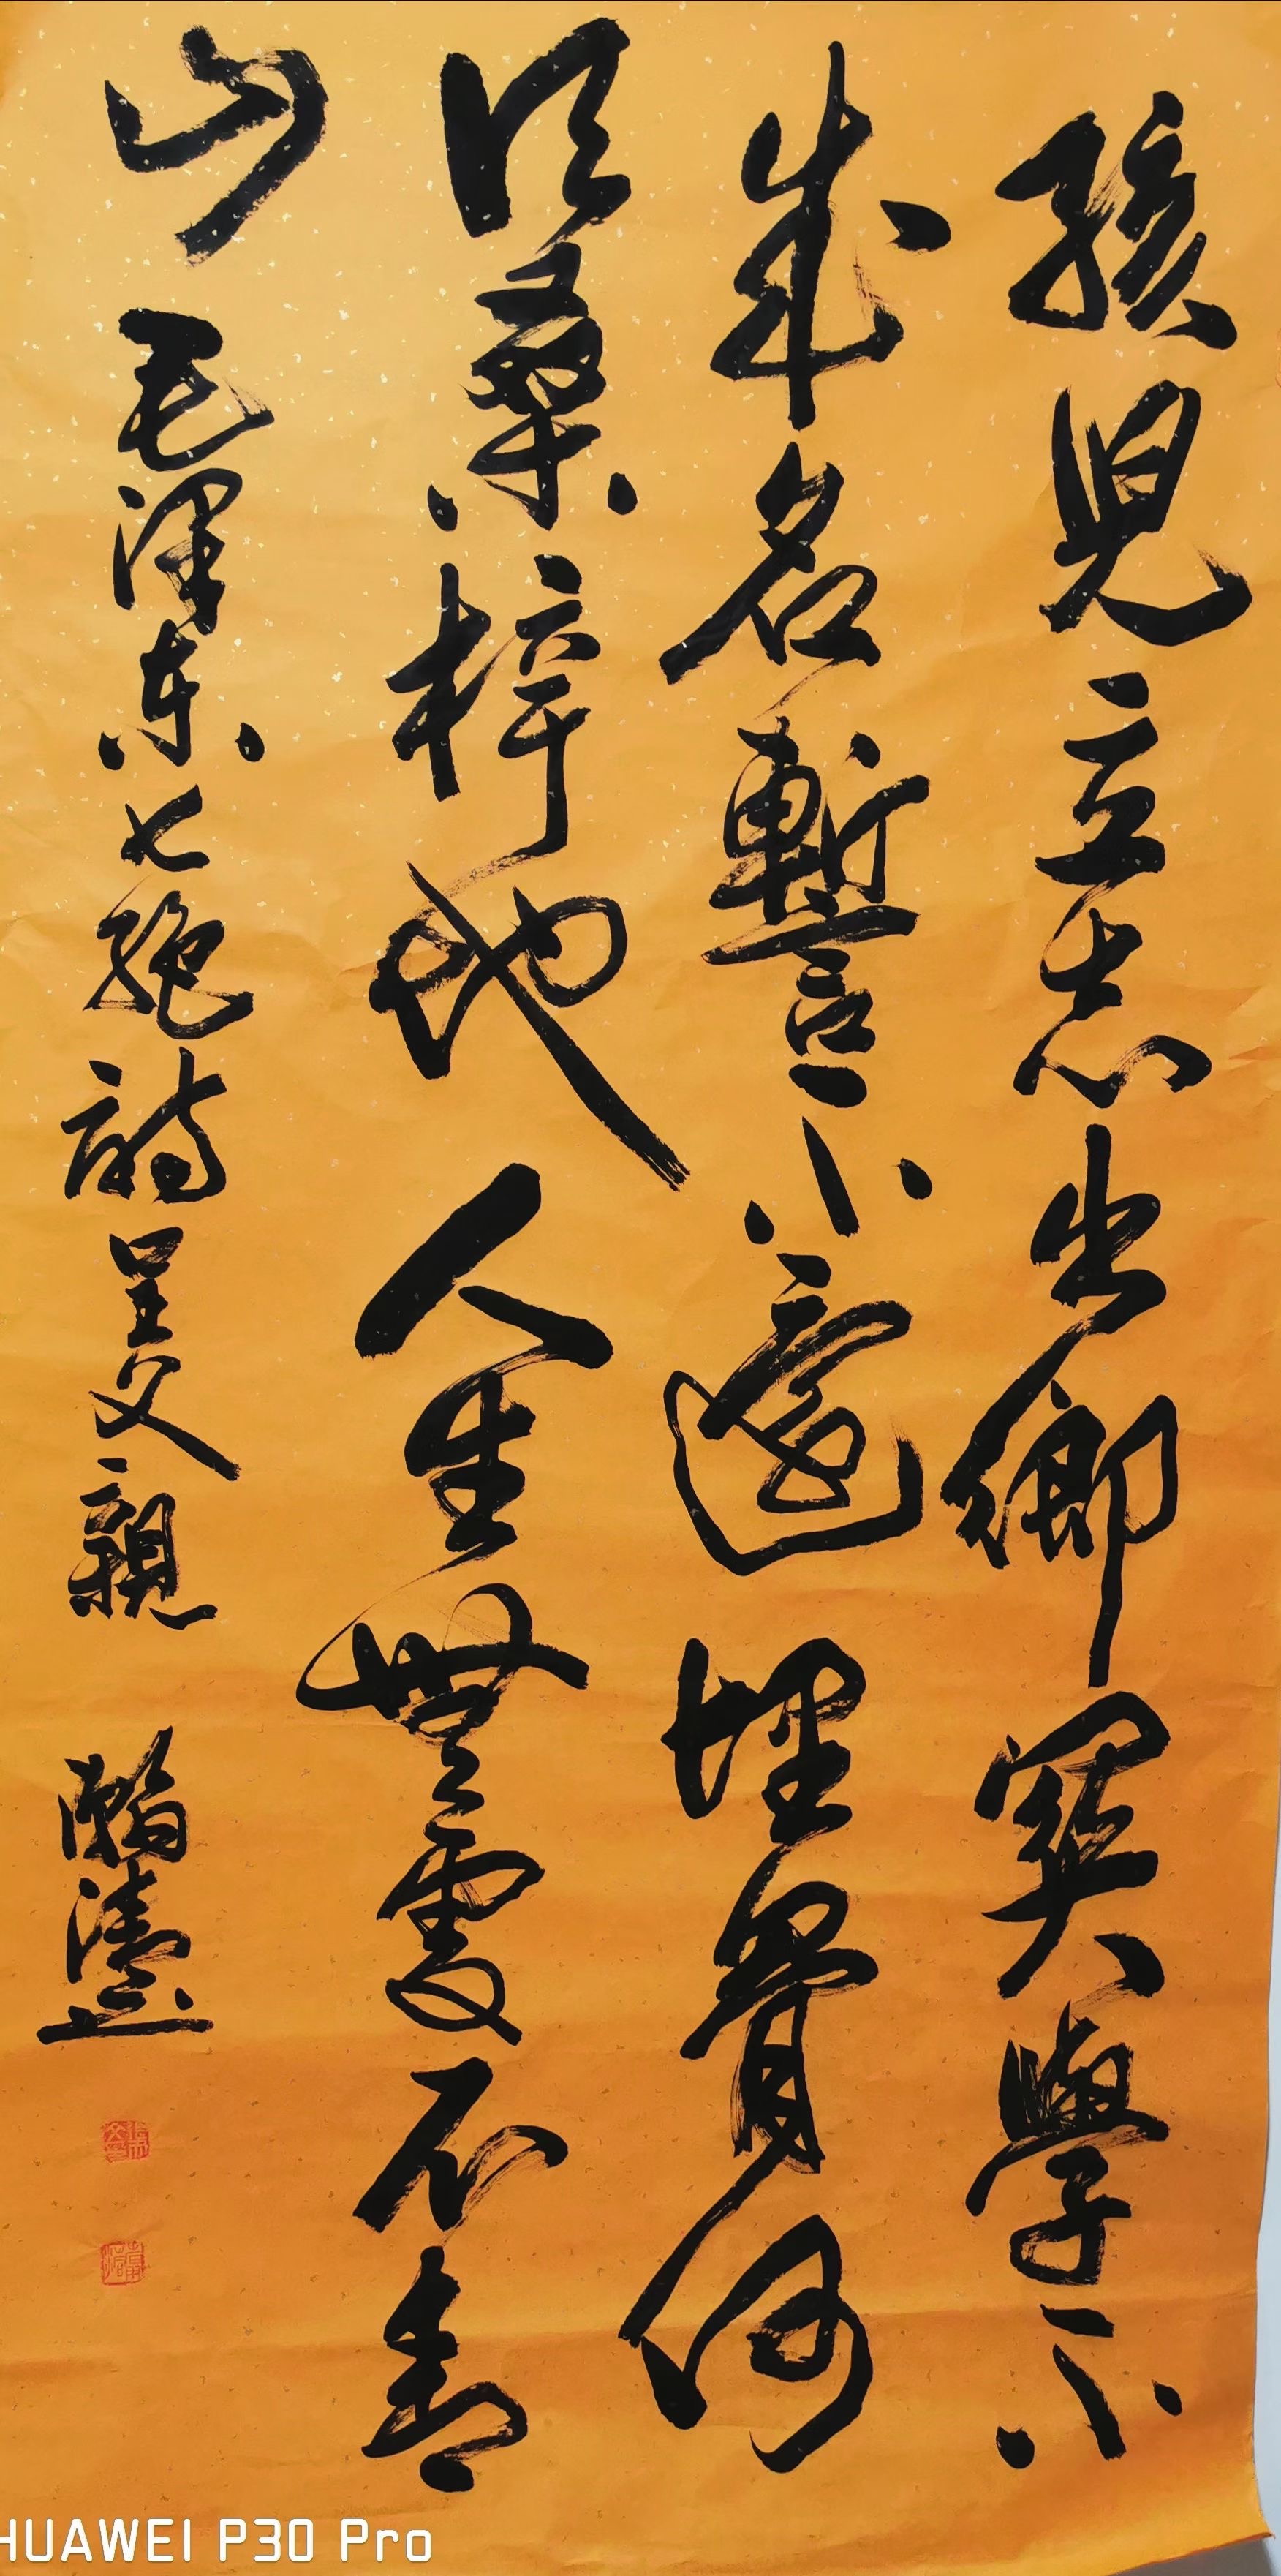 孩兒立志出鄉關學不
成名誓不還埋骨何
須桑梓地人生無處不青
山 毛澤東七絕詩呈父親 瀚